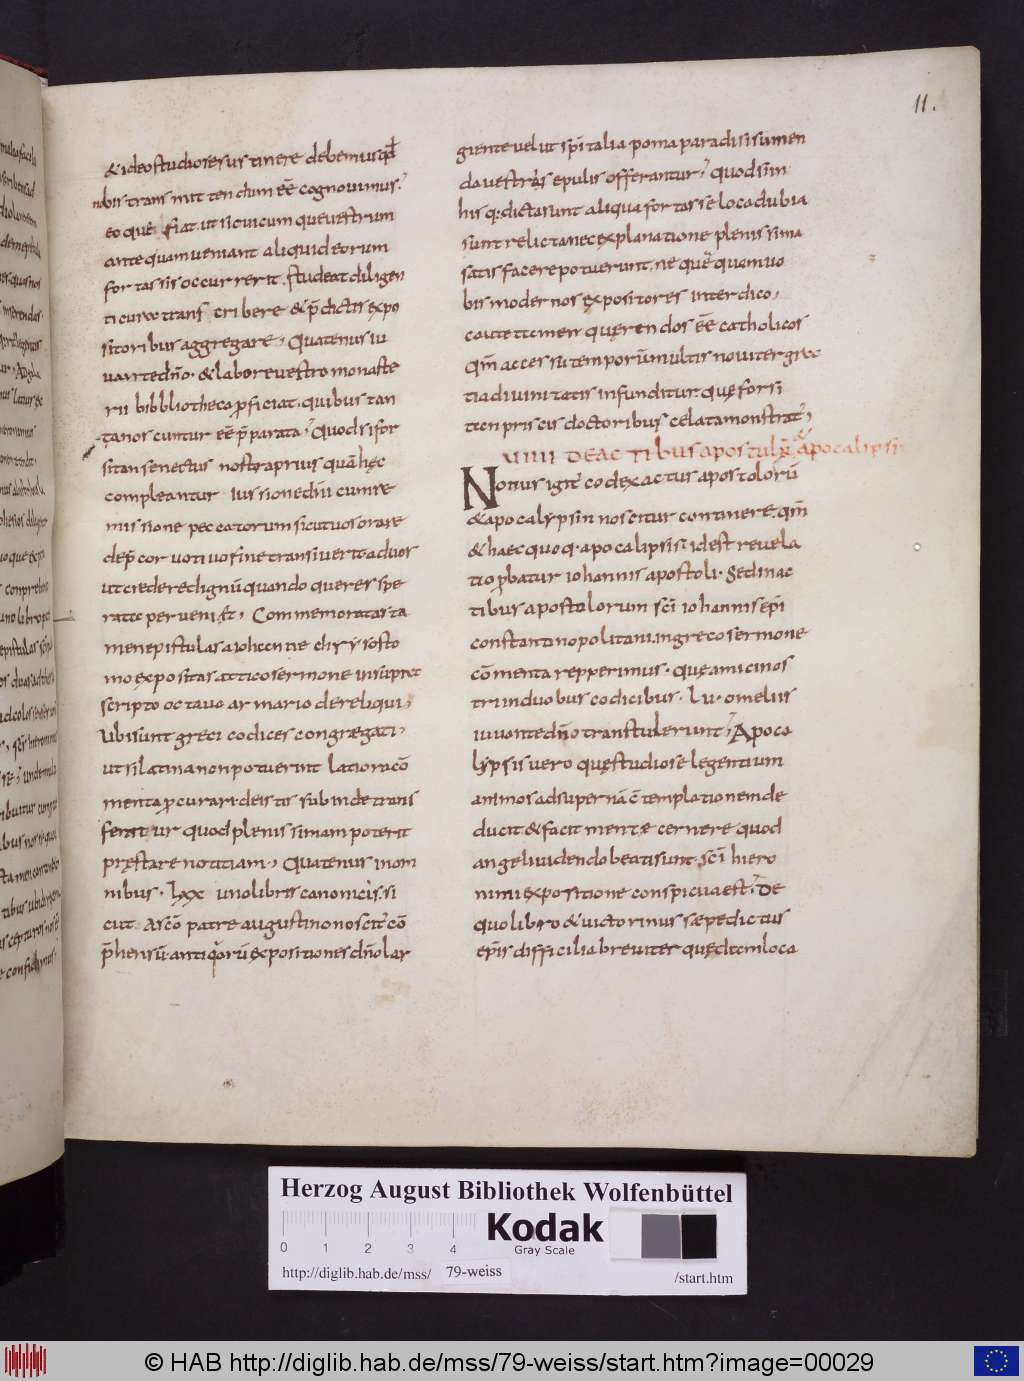 11.
& ideo studiose sustinere debemus qđ
nobis transmittendum eē cognovimus;
eo quē fiat ut si cuicum que vestrum
antequam veniant aliquid eorum
fortassis occurrerit. studeat diligen
ti cura transscribere & p̄dictis expo
sitoribus aggregare; Quatenus iu
vante dn̄o. & labore vestro monaste
rii bibbliotheca ꝓficiat. quibus tan
ta noscuntur eē p̄parata; Quod si for
sitan senectus nostra prius quā hęc
compleantur iussione dn̄i cum re
missione peccatorum sicut vos orare
dep̄cor votivo fine transiverit ad vos
ut credere dignū quando queres spe
rata perveni&; Commemoratas ta
men epistulas a iohanne chrysosto
mo expositas attico sermone in suprac
scripto octavo armario dereliqui;
Ubi sunt greci codices congregati;
ut si latina non potuerint latiora cō
menta ꝓcurari. de istis subinde trans
feratur quod plenissimam poterit
pręstare notitiam; Quatenus in om
nibus. lxx unolibris canonicis. si
cut a scō patre augustino noscit̄ cō
p̄hensū. antiquorū expositiones dn̄o lar
giente velut spiritalia poma paradisi sumen
da vestris epulis offerantur; quod si in
his q: dicta sunt aliqua fortasse loca dubia
sunt relicta nec explanatione plenissima
satisfacere potuerunt. ne quęquam vo
bis modernos expositores interdico;
caute tamen querendos eē catholicos
Qm̄ accessu temporū multis noviter gra
tia divinitatis infunditur. que forsi
tan priscis doctoribus celata monstrat̄;
VIIII DE ACTIbus apostulorū & apocalipsin
Nonus igit̄ codex actus apostolorū
& apocalypsin noscitur continere. qm̄
& haec quoq. apocalipsis. idest revela
tio ꝓbatur iohannis apostoli. Sed in ac
tibus apostolorum sc̄i iohannis ep̄i
constantinopolitani. in greco sermone
cōmenta repperimus. que amici nos
tri in duobus codicibus. Lv. omeliis
iuvante dn̄o transtulerunt; Apoca
lypsis vero que studiose legentium
animos ad supernā cōtemplationem de
ducit & facit mente cernere quod
angeli videndo beati sunt. sc̄i hiero
nimi expositione conspicua est; De
quo libro & victorinus sæpe dictus
ep̄is difficilia breviter quędam loca
Herzog August Bibliothek Wolfenbüttel
0 1 2 3 4
Kodak
Gray Scale
http://diglib.hab.de/mss/ 79-weiss /start.htm
© HAB http://diglib.hab.de/mss/79-weiss/start.htm?image=00029